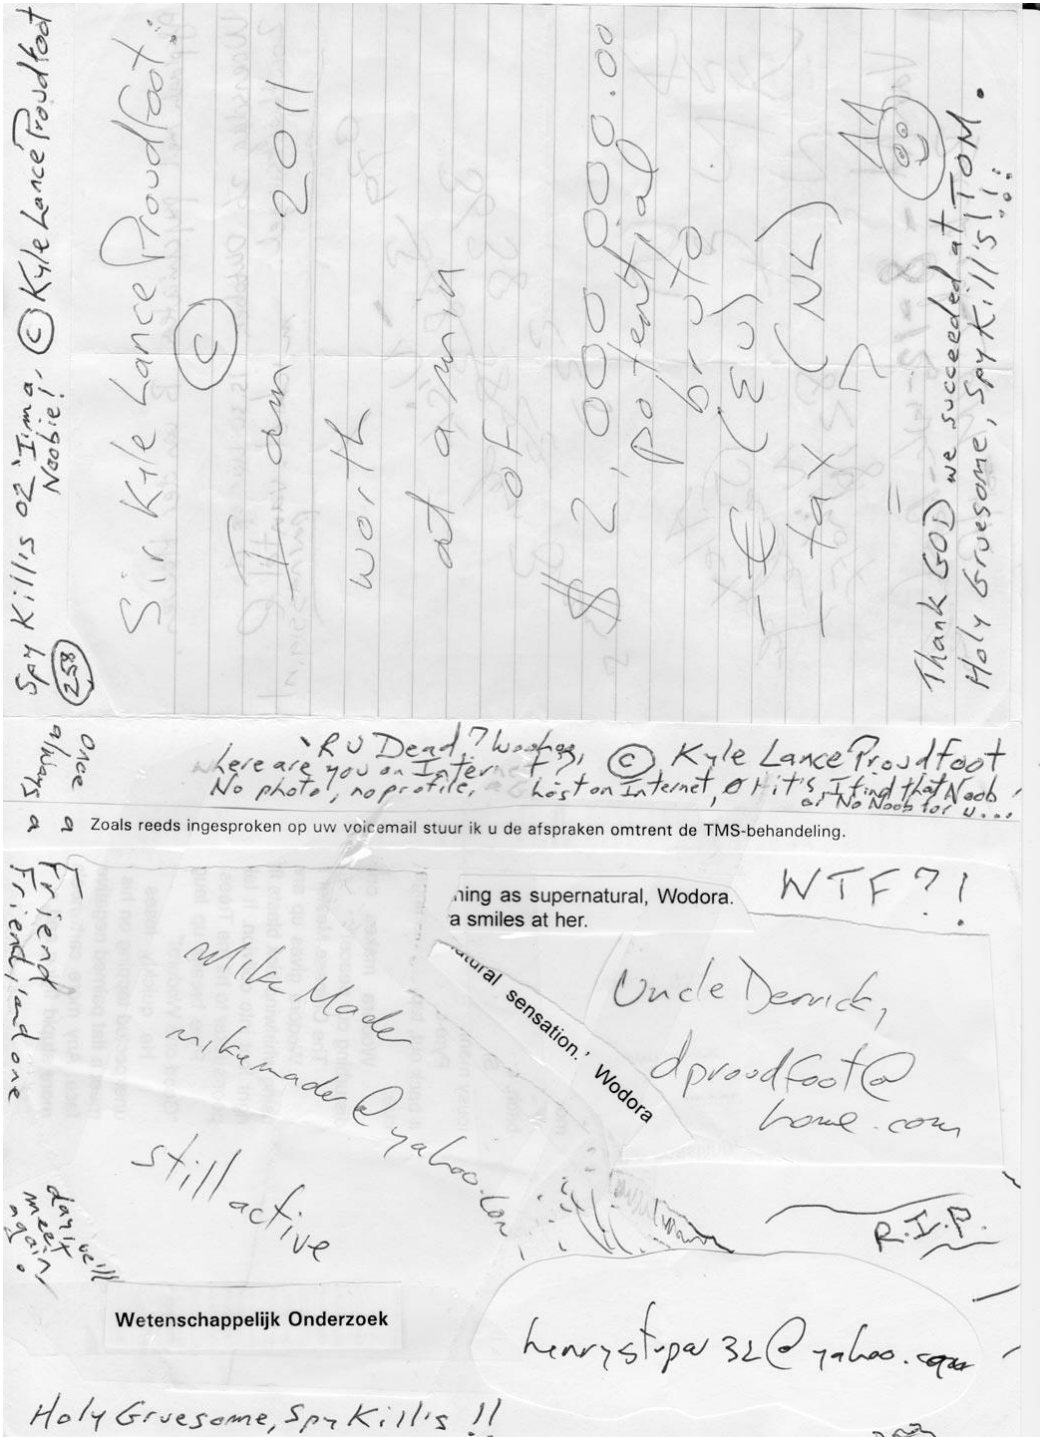 Spy Killis 02 'I'ma, © Kyle Lance Proudfoot
Noobie!
258
Sir Kyle Lance Proudfoot
©
I am 2011
worth
at a min
of
$ 2,000 000.00
potential
bruto
- € (EU)
- tax (NL)
=
Thank GOD we succeeded at TOM.
Holy Gruesome, Spy Kill's!!
'R U Dead? © Kyle Lance Proudfoot
where are you on Internet?
No photo!, no profile, a ghost on Internet, 0 Hit's, I find that Noob!
or No Noob for u...
Once
always
a a
Friend
Friend, and one
day we'll
meet
again!
Zoals reeds ingesproken op uw voicemail stuur ik u de afspraken omtrent de TMS-behandeling.
WTF?!
ning as supernatural, Wodora.
a smiles at her.
atural sensation.' Wodora
Mike Mader
mikemader@yahoo.com
still active
Uncle Derrick,
dproudfoot@
home.com
R.I.P.
Wetenschappelijk Onderzoek
henrystupar32@yahoo.com
Holy Gruesome, Spy Killis!!